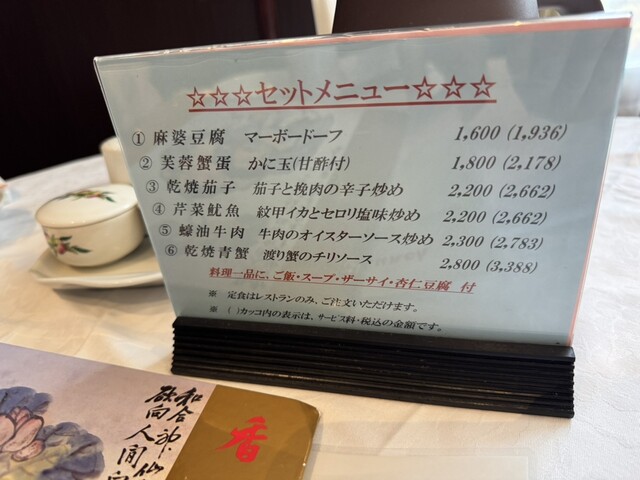 ☆☆☆セットメニュー☆☆☆
① 麻婆豆腐 マーボードーフ 1,600 (1,936)
② 芙蓉蟹蛋 かに玉(甘酢付) 1,800 (2,178)
③ 乾焼茄子 茄子と挽肉の辛子炒め 2,200 (2,662)
④ 芹菜魷魚 紋甲イカとセロリ塩味炒め 2,200 (2,662)
⑤ 蠔油牛肉 牛肉のオイスターソース炒め 2,300 (2,783)
⑥ 乾焼青蟹 渡り蟹のチリソース 2,800 (3,388)
料理一品に、ご飯・スープ・ザーサイ・杏仁豆腐 付
※ 定食はレストランのみ、ご注文いただけます。
※ ( )カッコ内の表示は、サービス料・税込の金額です。
和合神仙
人間
香